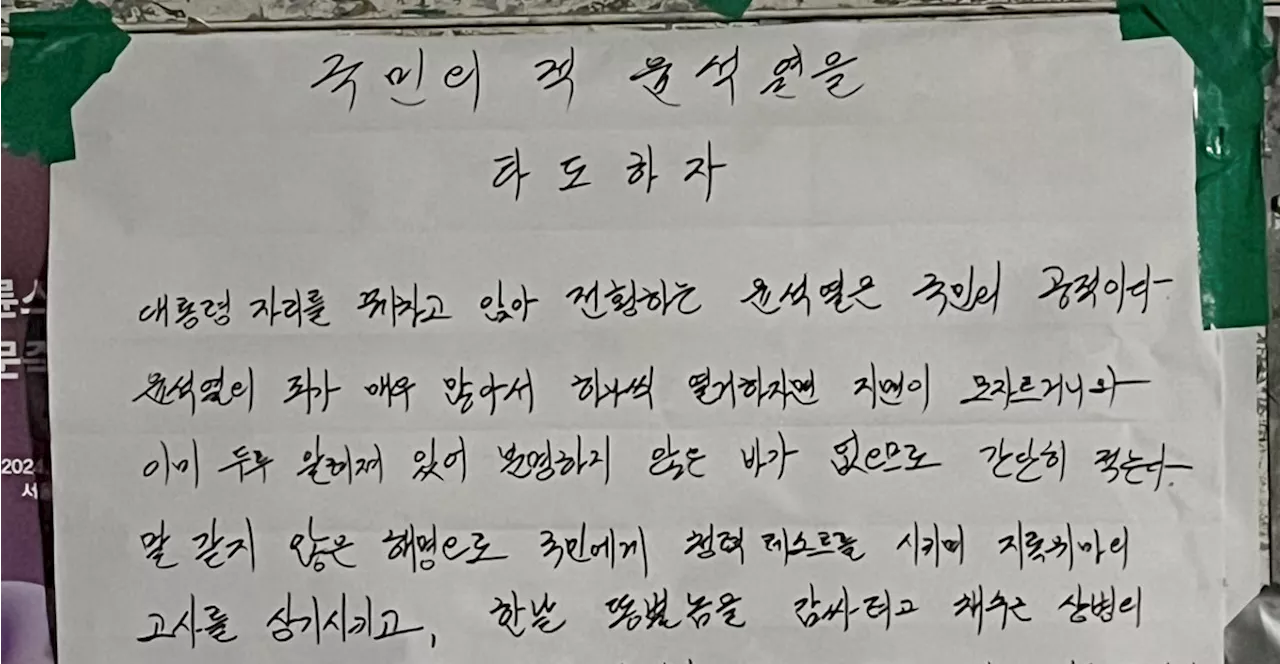 국민의 적 윤석열을
타도하자
대통령 자리를 꿰차고 앉아 전횡하는 윤석열은 국민의 공적이다
윤석열의 죄가 매우 많아서 하나씩 열거하자면 지면이 모자르거니와
이미 두루 알려져 있어 분명하지 않은 바가 없으므로 간단히 적는다.
말 같지 않은 해명으로 국민에게 청력 테스트를 시키며 지록위마의
고사를 상기시키고, 한낱 똥별놈을 감싸려고 채수근 상병의
2024